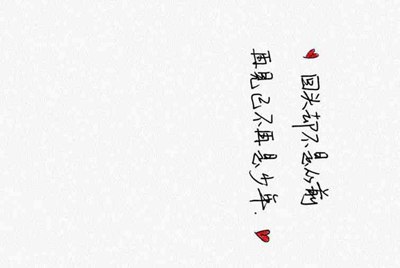 回头却不是从前
再见已不再是少年.